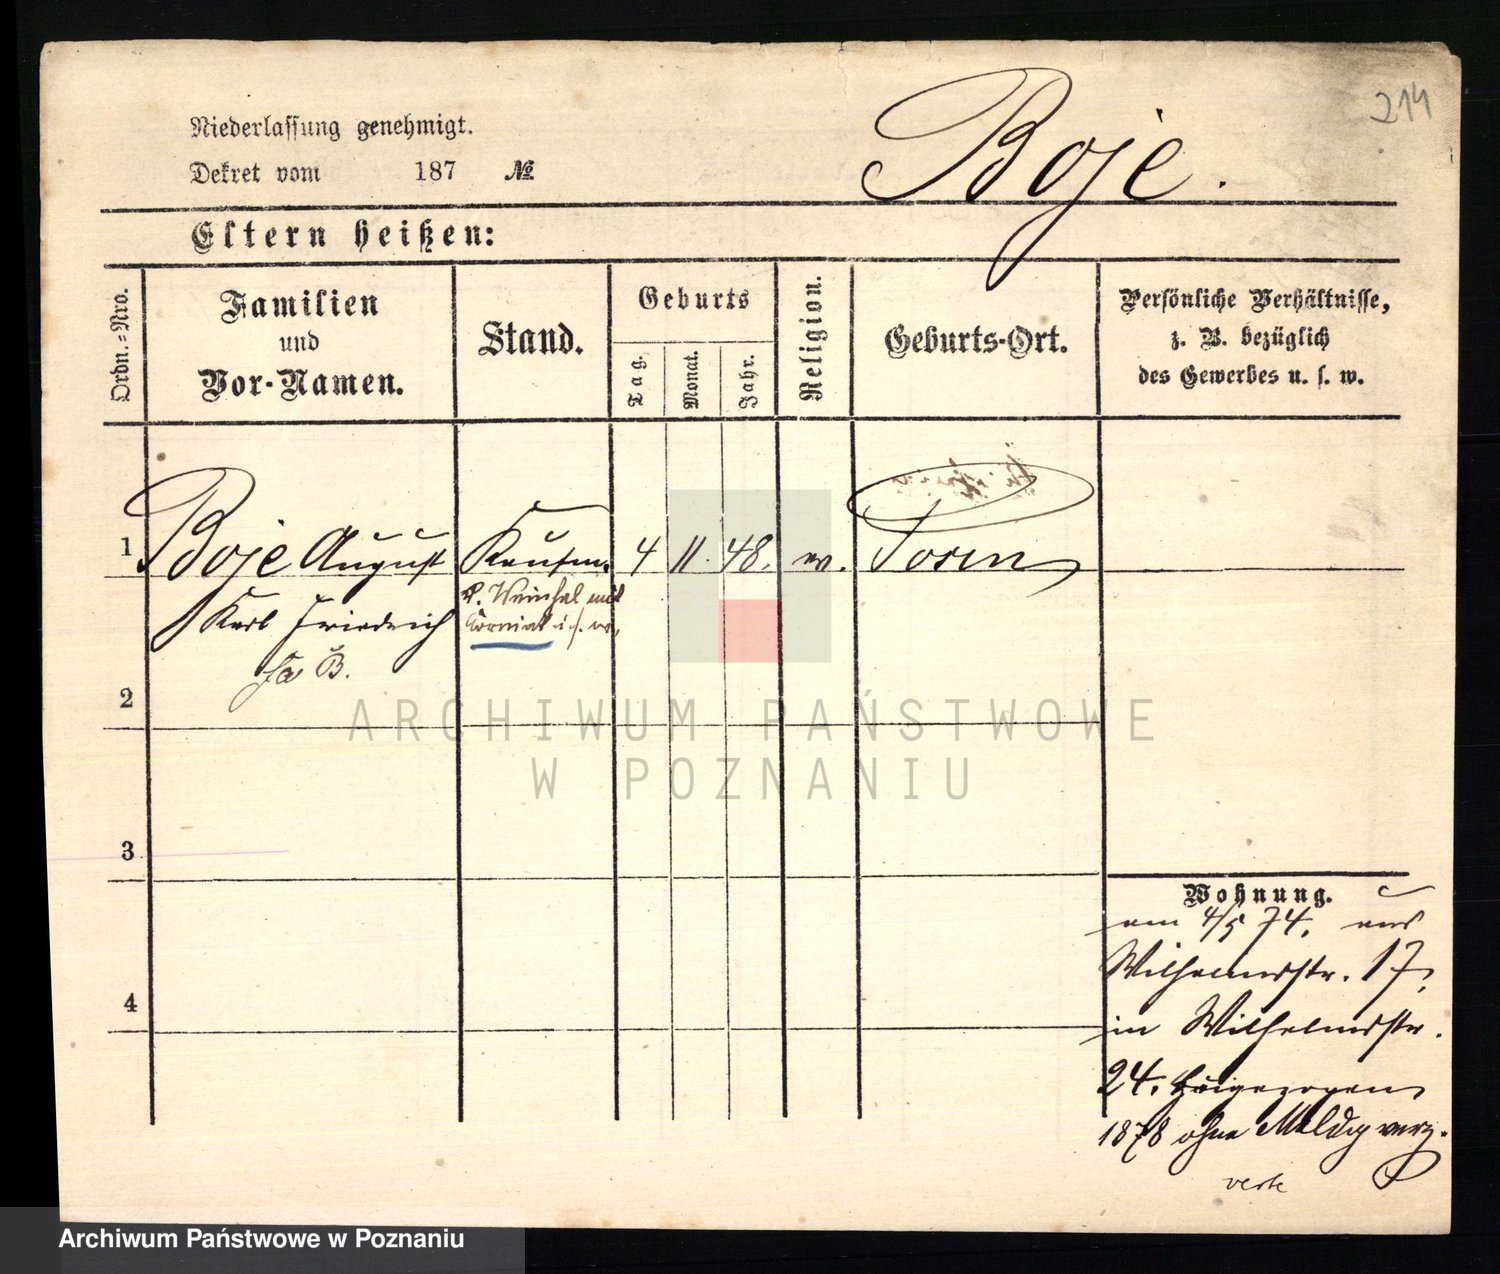 214
Boje.
Niederlassung genehmigt.
Dekret vom 187 №
Eltern heißen:
Ordn.-Nro.
Familien
und
Vor-Namen.
Stand.
Geburts
Tag.
Monat.
Jahr.
Religion.
Geburts-Ort.
Persönliche Verhältnisse,
z. B. bezüglich
des Gewerbes u. s. w.
1 Boje August Kaufm. 4 11. 48. ev. Posen
Karl Friedrich
Fa B.
2
3
4
ARCHIWUM PAŃSTWOWE
W POZNANIU
Wohnung.
am 4/5 74. aus
Wilhelmstr. 17.
in Wilhelmstr.
24.
1878 ohne Meldg verz.
verte
Archiwum Państwowe w Poznaniu